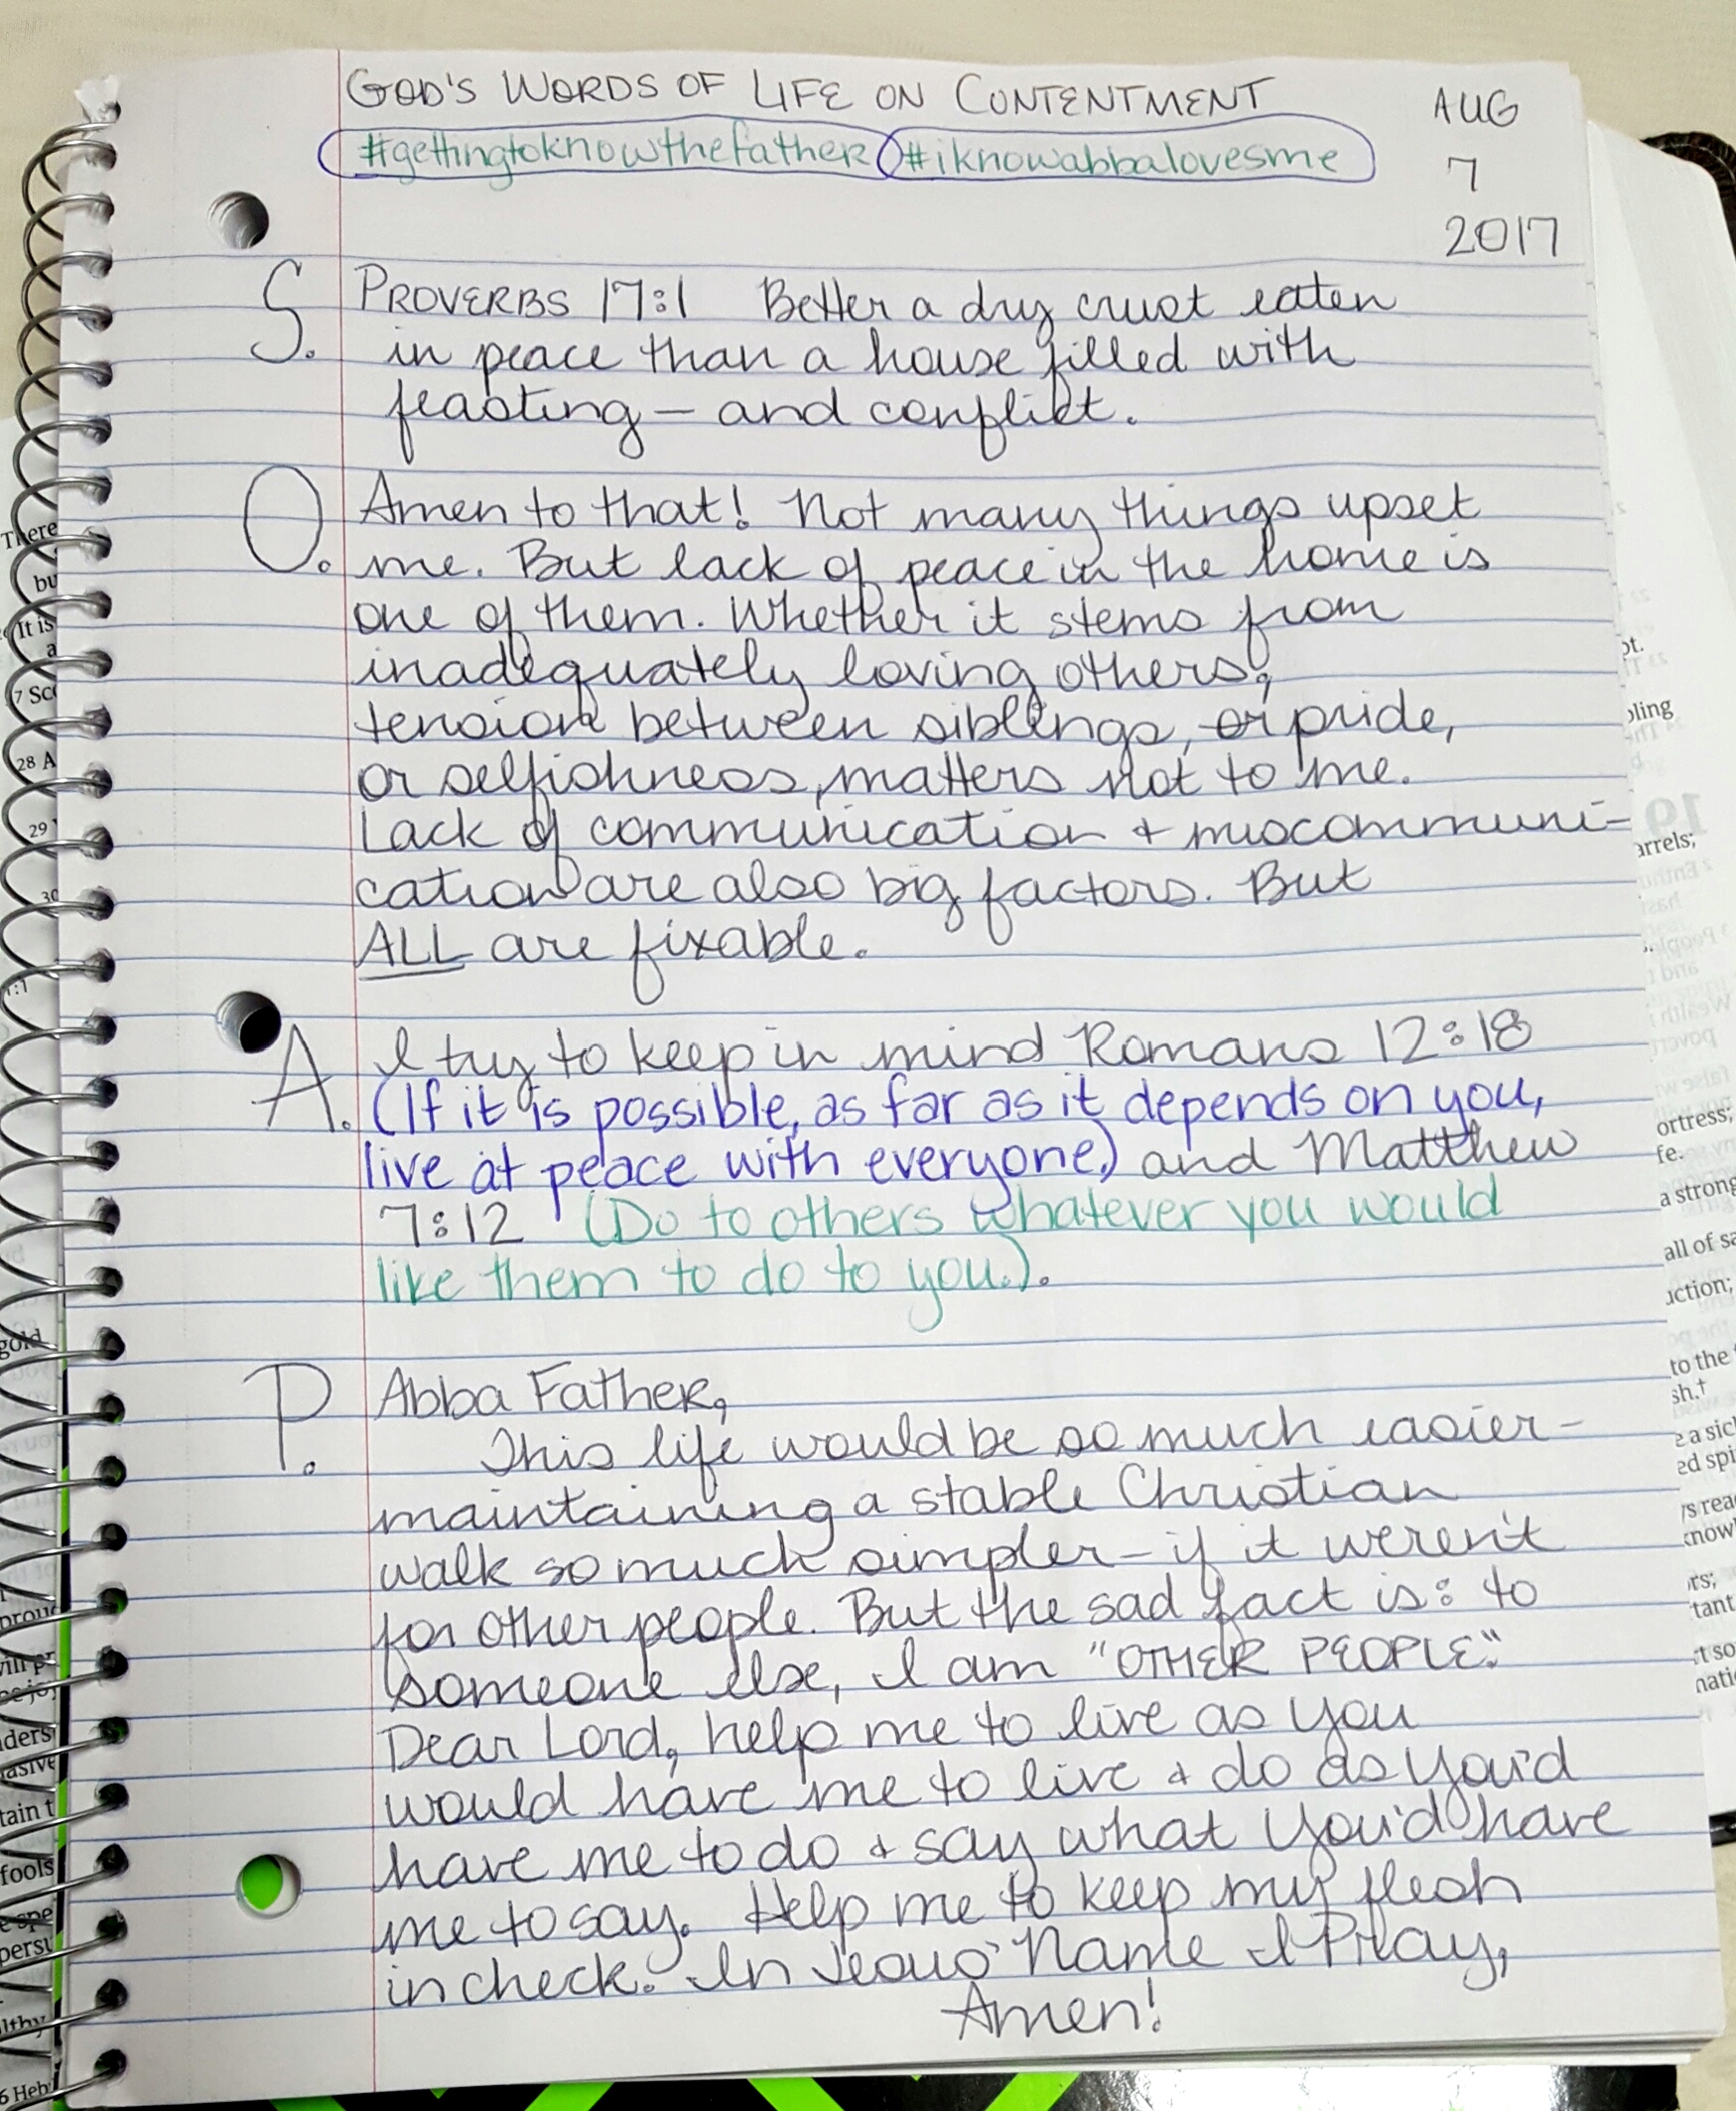 GOD'S WORDS OF LIFE ON CONTENTMENT
#gettingtoknowthefather #iknowabbalovesme
AUG
7
2017
S. PROVERBS 17:1 Better a dry crust eaten
in peace than a house filled with
feasting — and conflict.
O. Amen to that! Not many things upset
me. But lack of peace in the home is
one of them. Whether it stems from
inadequately loving others,
tension between siblings, or pride,
or selfishness, matters not to me.
Lack of communication + miscommuni-
cation are also big factors. But
ALL are fixable.
A. I try to keep in mind Romans 12:18
(If it is possible, as far as it depends on you,
live at peace with everyone.) and Matthew
7:12 (Do to others whatever you would
like them to do to you.).
P. Abba Father,
This life would be so much easier -
maintaining a stable Christian
walk so much simpler - if it weren't
for other people. But the sad fact is: to
someone else, I am "OTHER PEOPLE."
Dear Lord, help me to live as You
would have me to live + do as You'd
have me to do + say what You'd have
me to say. Help me to keep my flesh
in check. In Jesus' Name I Pray,
Amen!
There
bu
It is
a
7 Sc
28 A
29
30
gold
fools
6 Heb
pt.
19
arrels;
ortress;
fe.
a strong
all of sa
uction;
to the
sh.†
e a sic
ed spi